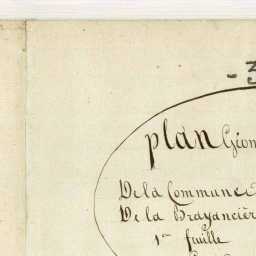 - 3
plan Géom
De la Commune
De la Brayancièr
1re feuille